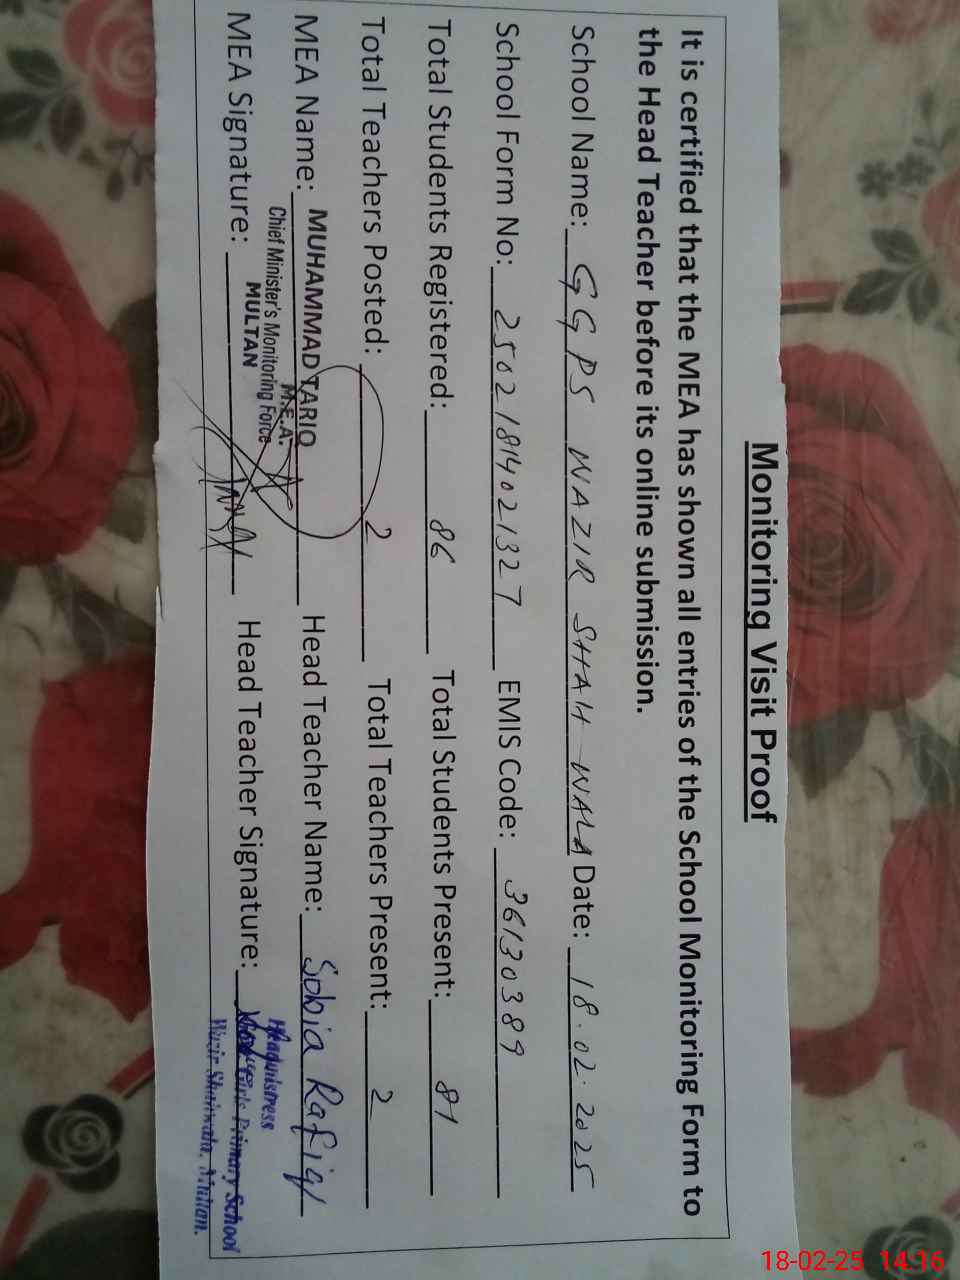 Monitoring Visit Proof
It is certified that the MEA has shown all entries of the School Monitoring Form to
the Head Teacher before its online submission.
School Name: GGPS WAZIR SHAH WALA Date: 18.02.2025
School Form No: 25021814021327 EMIS Code: 36130389
Total Students Registered: 86 Total Students Present: 81
Total Teachers Posted: 2 Total Teachers Present: 2
MEA Name: MUHAMMAD TARIQ Head Teacher Name: Sobia Rafiq
M.E.A.
Chief Minister's Monitoring Force
MULTAN
MEA Signature: Head Teacher Signature:
Headmistress
Girls Primary School
Wazir Shahwala, Multan.
18-02-25 14:16